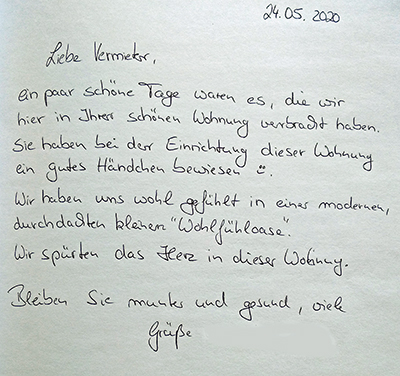 24.05.2020
Liebe Vermieter,
ein paar schöne Tage waren es, die wir
hier in Ihrer schönen Wohnung verbracht haben.
Sie haben bei der Einrichtung dieser Wohnung
ein gutes Händchen bewiesen ü.
Wir haben uns wohl gefühlt in einer modernen,
durchdachten kleinen "Wohlfühloase".
Wir spürten das Herz in dieser Wohnung.
Bleiben Sie munter und gesund, viele
Grüße